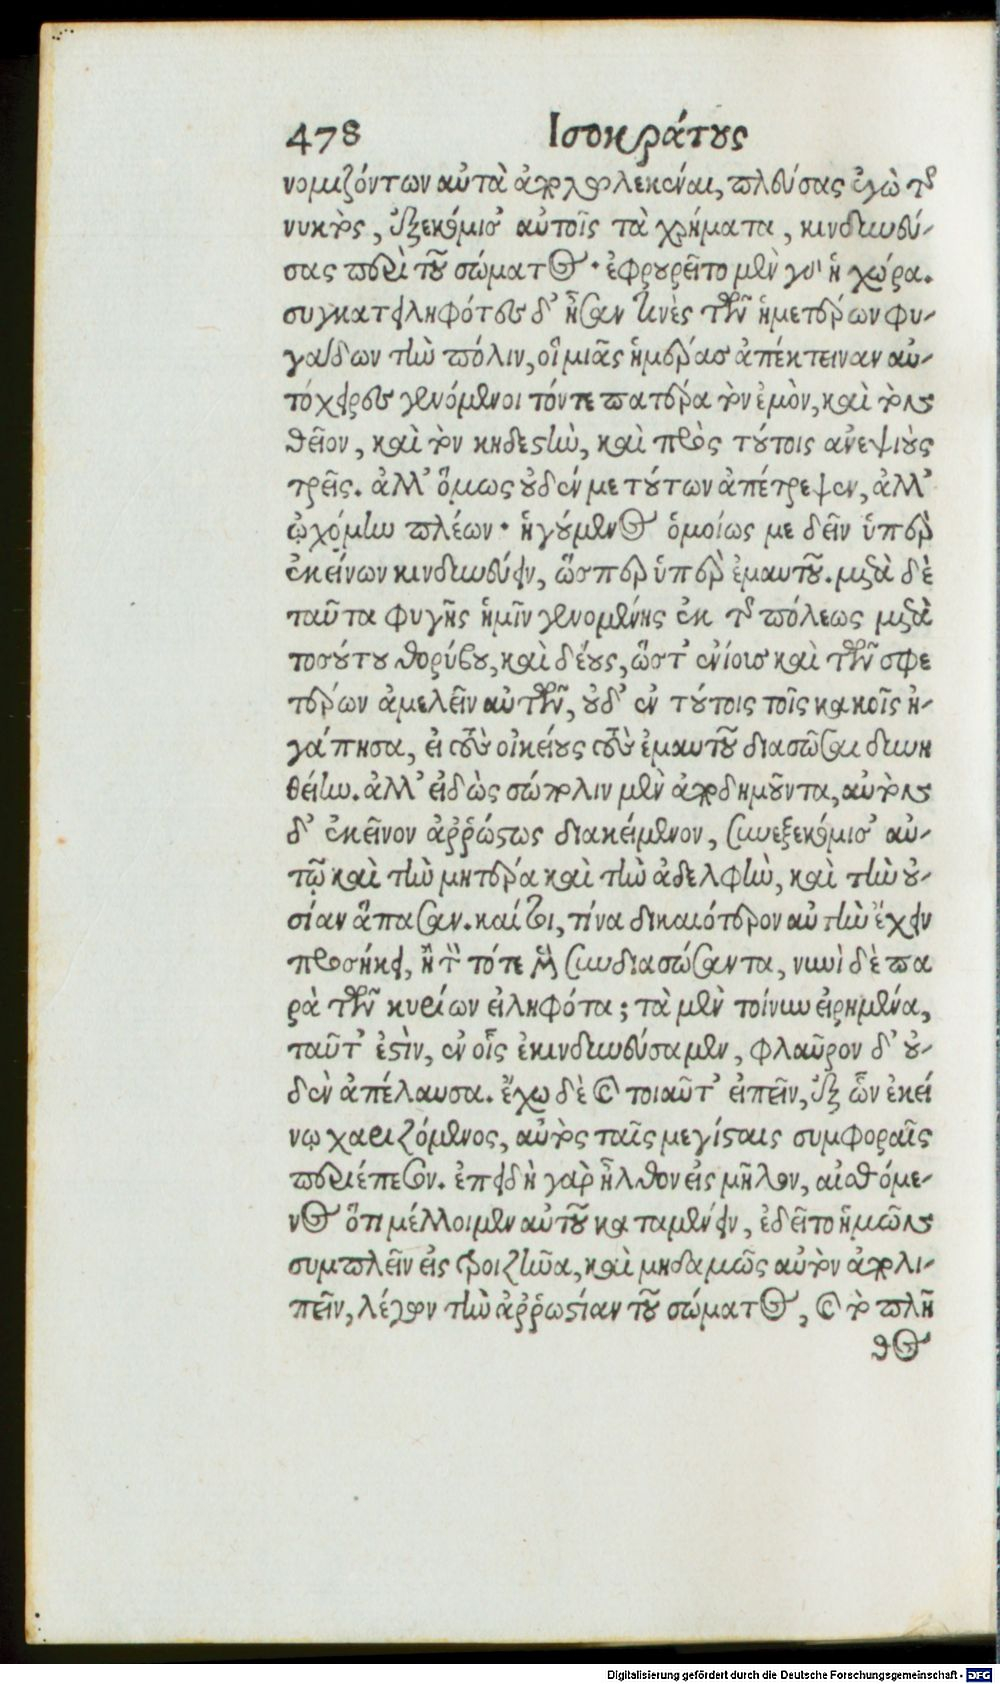 478 Ἰσοκράτους
νομιζόντων αὐτὰ ἀπολωλεκέναι, πλεύσας ἐγὼ τῆς
νυκτὸς, ἐξεκόμισ' αὐτοῖς τὰ χρήματα, κινδυνεύ-
σας περὶ τοῦ σώματος· ἐφρουρεῖτο μὲν γὰρ ἡ χώρα.
συγκατειληφότες δ' ἦσαν τινὲς τῶν ἡμετέρων φυ-
γάδων τὴν πόλιν, οἳ μιᾶς ἡμέρας ἀπέκτειναν αὐ-
τόχειρες γενόμενοι τόν τε πατέρα τὸν ἐμὸν, καὶ τὸν
θεῖον, καὶ τὸν κηδεστὴν, καὶ πρὸς τούτοις ἀνεψιοὺς
τρεῖς. ἀλλ' ὅμως οὐδέν με τούτων ἀπέτρεψεν, ἀλλ'
ᾠχόμην πλέων· ἡγούμενος ὁμοίως με δεῖν ὑπὲρ
ἐκείνων κινδυνεύειν, ὥσπερ ὑπὲρ ἐμαυτοῦ. μετὰ δὲ
ταῦτα φυγῆς ἡμῖν γενομένης ἐκ τῆς πόλεως μετὰ
τοσούτου θορύβου, καὶ δέους, ὥστ' ἐνίοις καὶ τῶν σφε
τέρων ἀμελεῖν αὐτῶν, οὐδ' ἐν τούτοις τοῖς κακοῖς ἠ-
γάπησα, εἰ τοὺς οἰκείους τοὺς ἐμαυτοῦ διασῶσαι δυνη
θείην. ἀλλ' εἰδὼς σώπολιν μὲν ἀποδημοῦντα, αὐτὸν
δ' ἐκεῖνον ἀῤῥώστως διακείμενον, συνεξεκόμισ' αὐ-
τῷ καὶ τὴν μητέρα καὶ τὴν ἀδελφὴν, καὶ τὴν οὐ-
σίαν ἅπασαν. καίτοι, τίνα δικαιότερον αὐτὴν ἔχειν
προσήκει, ἢ τὸν τότε μὲν συνδιασώσαντα, νυνὶ δὲ πα
ρὰ τῶν κυρίων εἰληφότα; τὰ μὲν τοίνυν εἰρημένα,
ταῦτ' ἐστὶν, ἐν οἷς ἐκινδυνεύσαμεν, φλαῦρον δ' οὐ-
δὲν ἀπέλαυσα. ἔχω δὲ καὶ τοιαῦτ' εἰπεῖν, ἐξ ὧν ἐκεί
νῳ χαριζόμενος, αὐτὸς ταῖς μεγίσταις συμφοραῖς
περιέπεσον. ἐπειδὴ γὰρ ἦλθον εἰς μῆλον, αἰσθόμε-
νος ὅτι μέλλοιμεν αὐτοῦ καταμένειν, ἐδεῖτο ἡμῶν
συμπλεῖν εἰς Τροιζῆνα, καὶ μηδαμῶς αὐτὸν ἀπολι-
πεῖν, λέγων τὴν ἀῤῥωστίαν τοῦ σώματος, καὶ τὸ πλῆ
θος